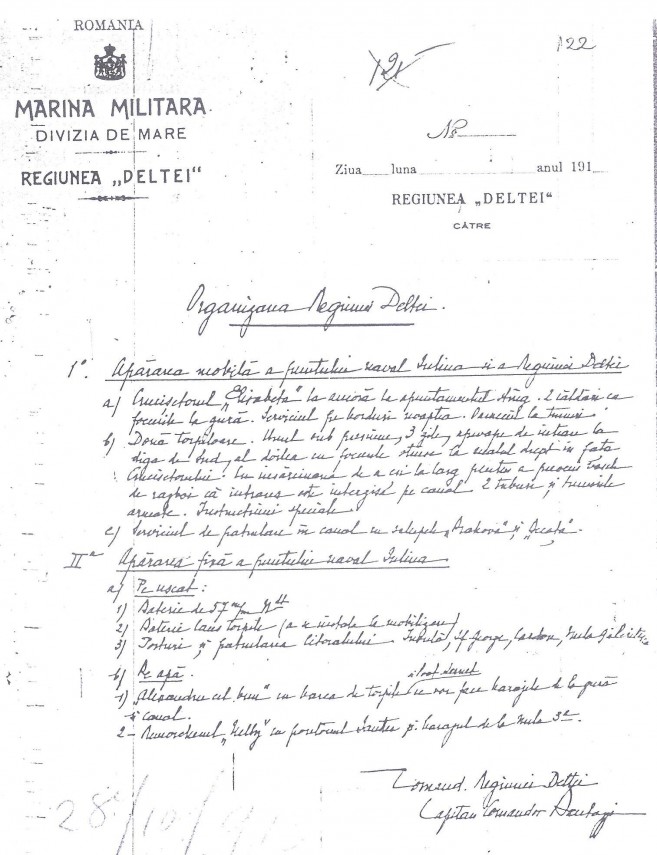 ROMANIA
MARINA MILITARA
DIVIZIA DE MARE
REGIUNEA „DELTEI“
121
122
No
Ziua luna anul 191
REGIUNEA „DELTEI“
CĂTRE
Organizarea Regiunei Deltei.
1°. Apărarea mobilă a punctului naval Sulina și a Regiunei Deltei
a) Crucișetorul „Elisabeta“ la ancoră la apuntamentul 2 căldări cu
focurile la gură. Serviciul pe borduri noaptea. la tunuri.
b) Două torpiloare. Unul sub presiune, 3 zile, aproape de intrare la
diga de Sud, al doilea cu focurile stinse la canalul drept în fața
Crucisetorului. însărcinarea de a eși la larg pentru a preveni vasele
de razboi că intrarea este interzisă pe canal. 2 tuburi și tunurile
armate. Instrucțiuni speciale.
c) Serviciul de patrulare în canal cu șalupele și
II a Apărarea fixă a punctului naval Sulina
a) Pe uscat:
1) Baterie de 57 m/m
2) Baterie lans torpile (a se instala la mobilizare)
3) Posturi și patrularea litoralului Sf George,
b) Pe apă.
1) „Alexandru cel bun“ cu barca de torpile ce vor face barajele de la gură
și canal.
2- Remorcherul ca la barajul de la Mila 3a.
Comand. Regiunei Deltei
Capitan Comandor
28/10/91